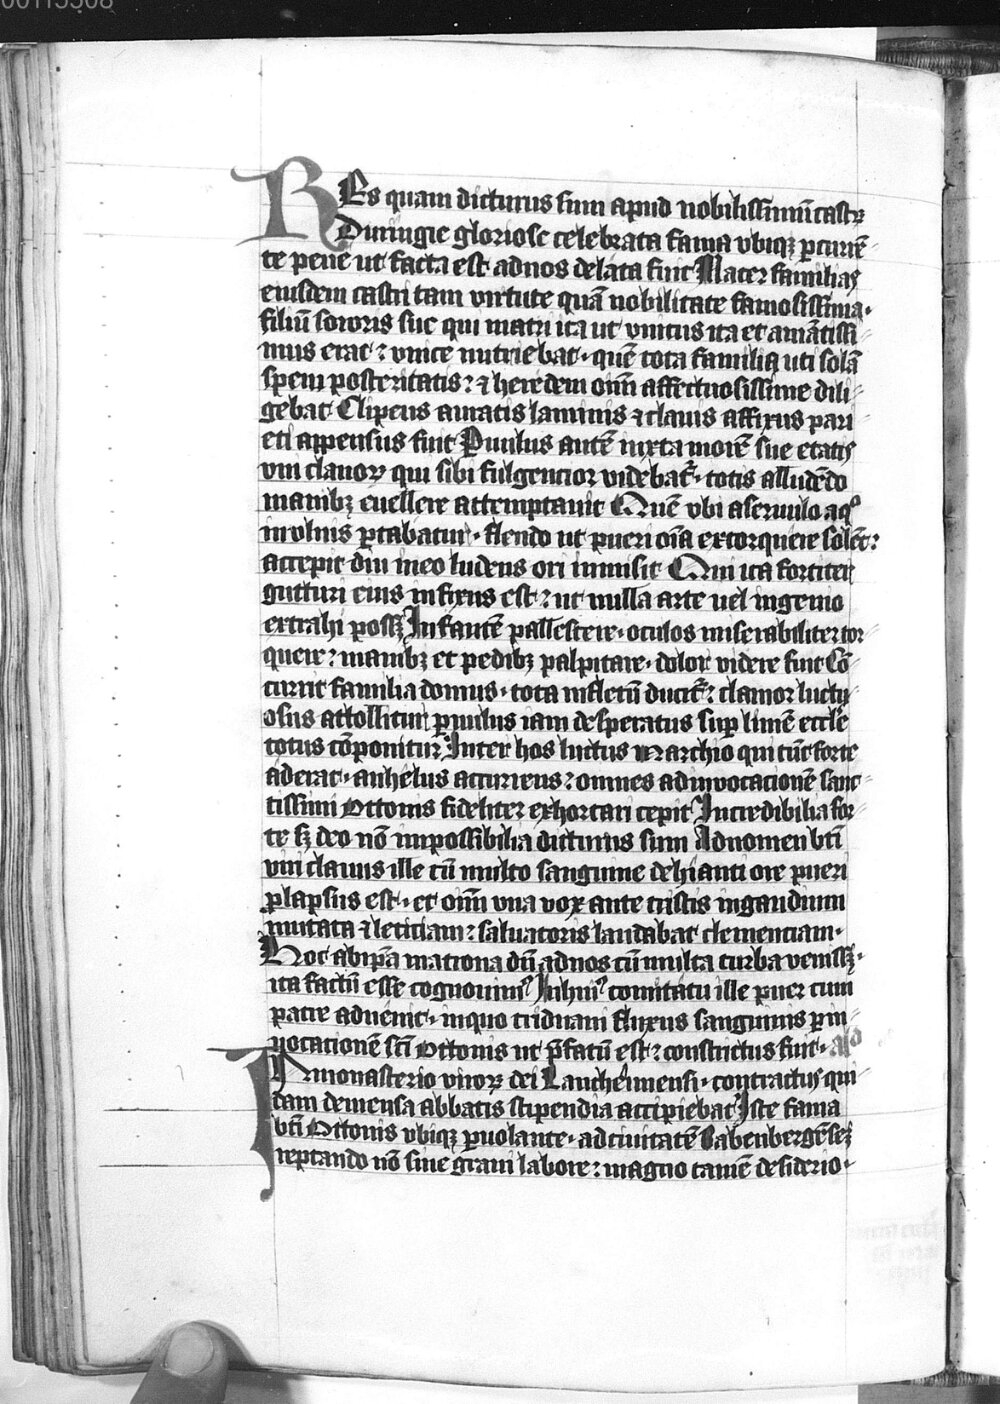 00113308
REs quam dicturus sum apud nobilissimū castrꝝ
Duringie gloriose celebrata fama vbiqꝫ ꝑcurrē
te pene ut facta est ad nos delata fuit Mater familias
eiusdem castri tam virtute quā nobilitate famosissima·
filiū sororis sue qui matri ita ut vnicus ita et amātissi
mus erat: vnice nutriebat· quē tota familia uti solā
spem posteritatis: ⁊ heredem om̄i affectuosissime dili
gebat Clipeus auratis laminis ⁊ clauis affixus pari
eti appensus fuit Puulus autē iuxta morē sue etatis
vnū clauoꝝ qui sibi fulgencior videbat᷑· totis alludēdo
manibꝫ euellere attemptauit Quē vbi a seruulo a qͦ
in vlnis ꝑtabatur· flendo ut pueri oīa extorquere solēt:
accepit dū in eo ludens ori inmisit Qui ita fortiter
gutturi eius infixus est: ut nulla arte uel ingenio
extrahi possꝫ Infantē pallescere· oculos miserabiliter tor
quere: manibꝫ et pedibꝫ palpitare· dolor videre fuit Cō
currit familia domus· tota in fletū ducit᷑: clamor luctu
osus attollitur ꝑuulus iam desperatus suꝑ limē eccl̄e
totus cōponitur Inter hos luctus marchio qui tūc forte
aderat· anhelus accurrens: omnes ad inuocacionē sanc
tissimi Ottonis fideliter exhortari cepit Incredibilia for
te sꝫ deo nō impossibilia dicturus sum Ad nomen bt̄i
viri clauus ille cū multo sanguine dehianti ore pueri
ꝓlapsus est· et om̄i vna vox ante tristis in gaudium
mutata ⁊ leticiam: saluatoris laudabat clemenciam·
Hoc ab ip̄a matrona dū ad nos cū multa turba venissꝫ·
ita factū esse cognouimꝰ In huiꝰ comitatu ille puer cum
patre aduenit· in quo triduani fluxus sanguinis ꝑ in
uocationē sc̄i Ottonis ut p̄fatū est: constrictus fuit·
IN monasterio viroꝝ dei Laucheimensi· contractus qui
dam de mensa abbatis stipendia accipiebat Iste fama
bt̄i Ottonis vbiqꝫ ꝑuolante· ad ciuitatē Babenbergēsez
reptando nō sine graui labore: magno tamē desiderio·